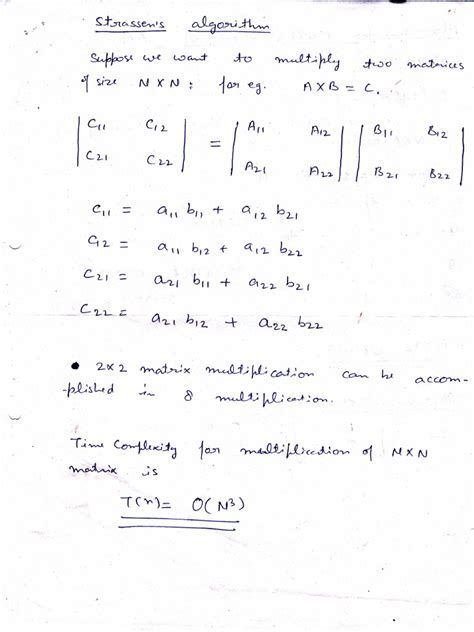 Strassen's algorithm
Suppose we want to multiply two matrices
of size N X N : for eg. A X B = C.
| C11 C12 | = | A11 A12 | | B11 B12 |
| C21 C22 | | A21 A22 | | B21 B22 |
C11 = a11 b11 + a12 b21
C12 = a11 b12 + a12 b22
C21 = a21 b11 + a22 b21
C22 = a21 b12 + a22 b22
• 2x2 matrix multiplication can be accom-
-plished in 8 multiplication.
Time Complexity for multiplication of N X N
matrix is
T(n) = O(N³)